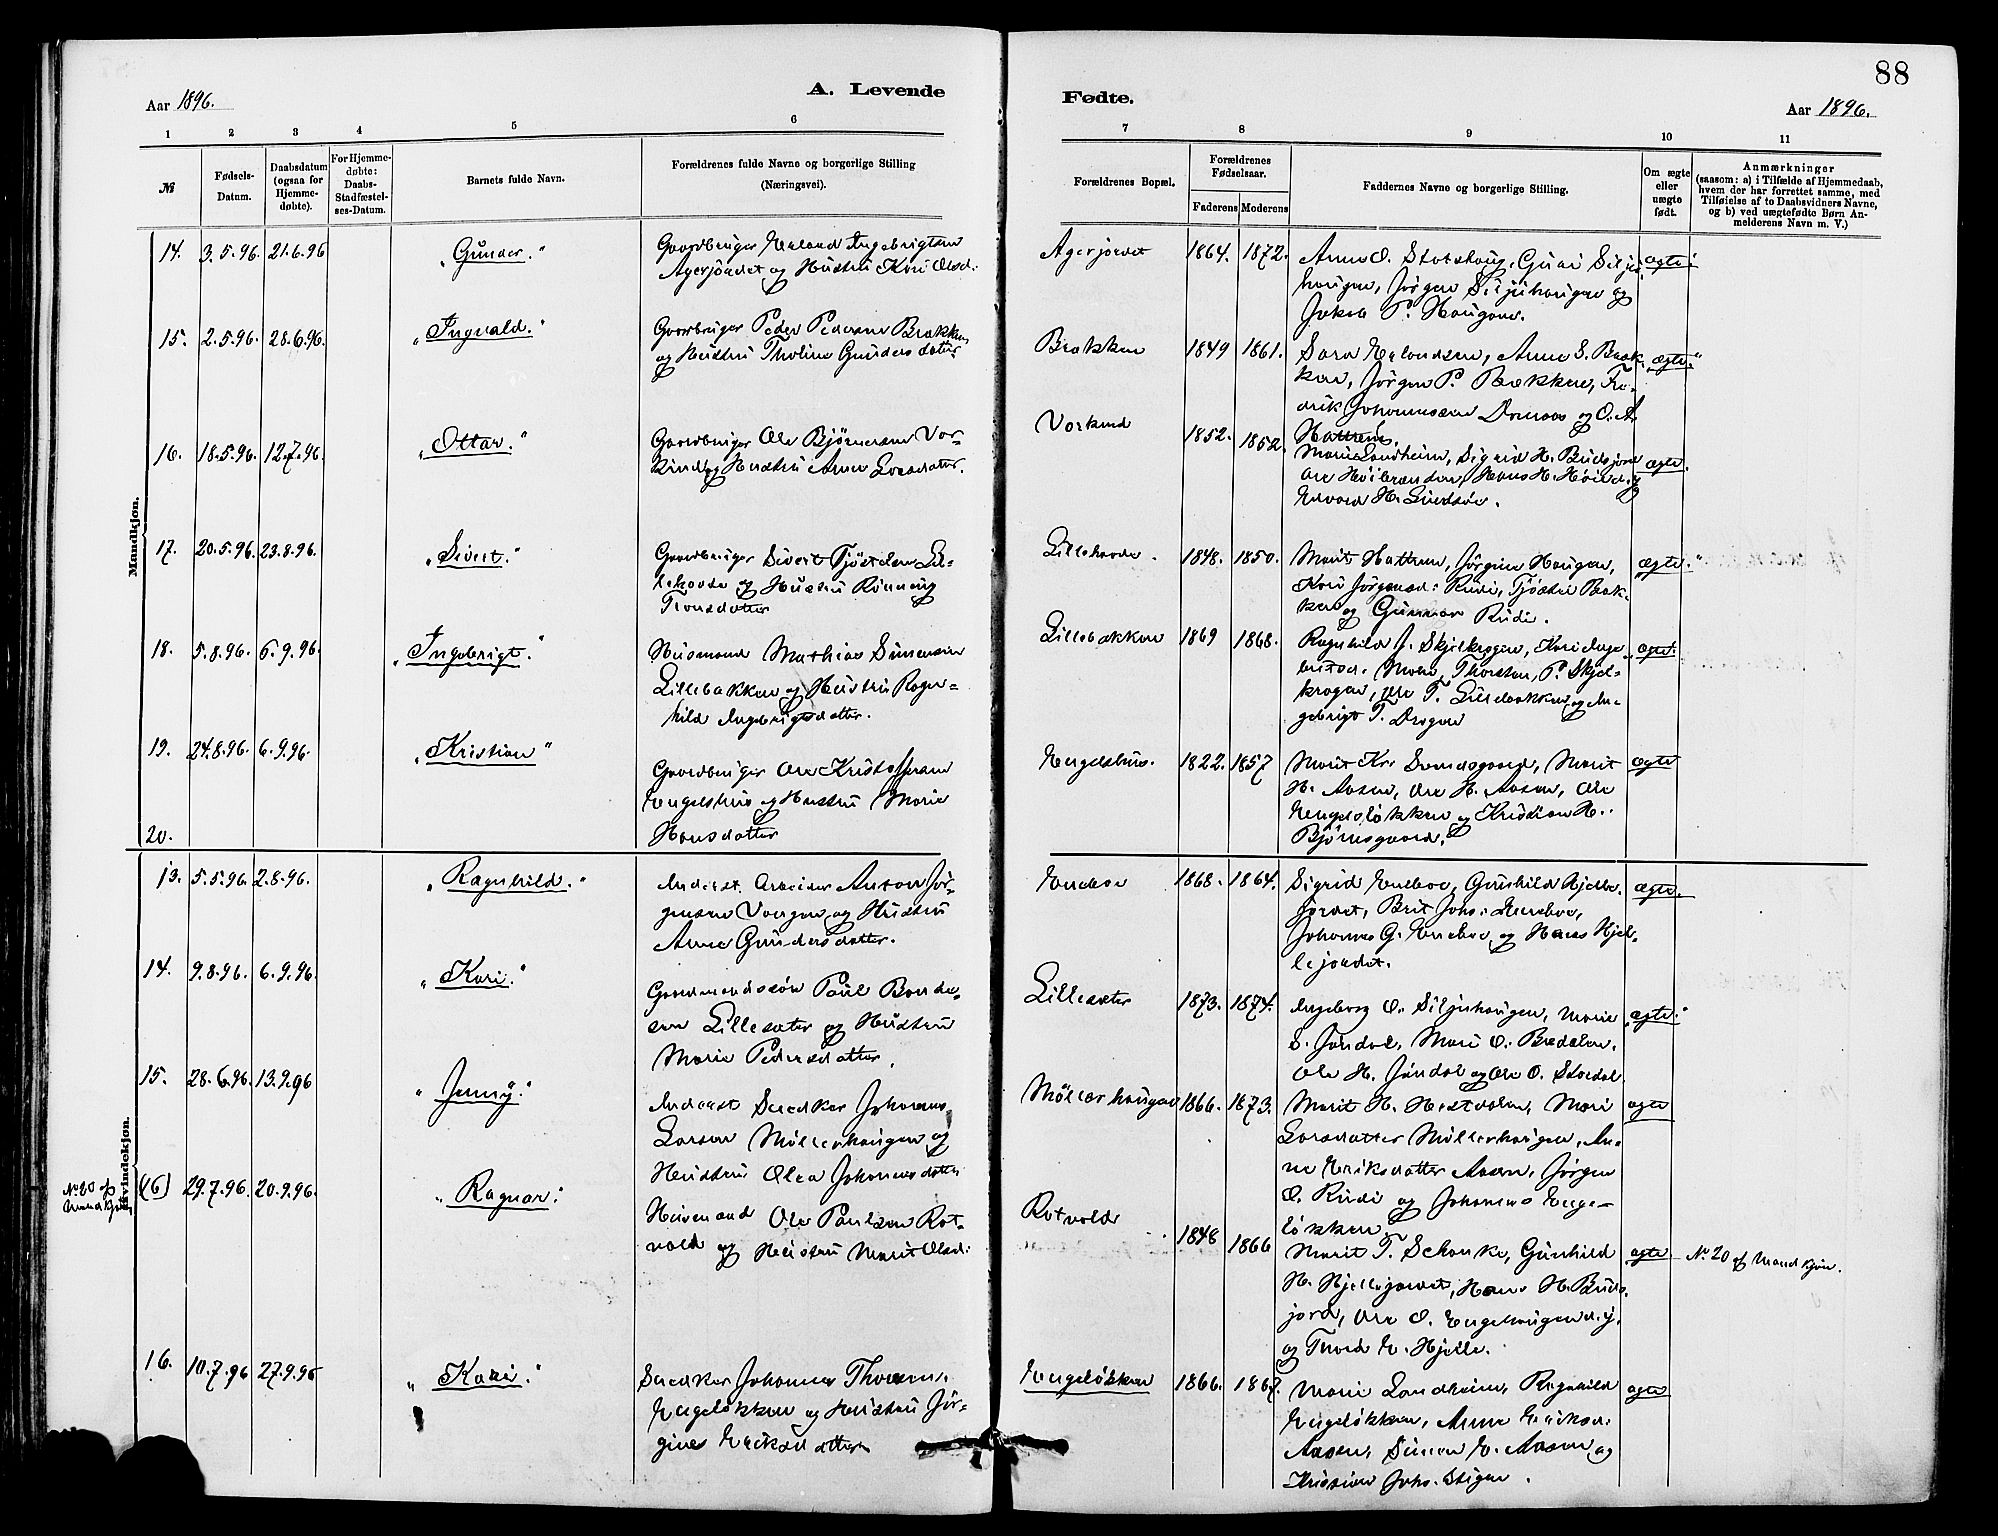 88
Aar 1896.
A. Levende
Fødte.
Aar 1896.
1 2 3 4 5 6 7 8 9 10 11
№
Fødsels-
Datum.
Daabsdatum
(ogsaa for
Hjemme-
døbte).
For Hjemme-
døbte:
Daabs-
Stadfæstel-
ses-Datum.
Barnets fulde Navn.
Forældrenes fulde Navne og borgerlige Stilling
(Næringsvei).
Forældrenes Bopæl.
Forældrenes
Fødselsaar.
Faderens Moderens
Faddernes Navne og borgerlige Stilling.
Om ægte
eller
uægte
født.
Anmærkninger
(saasom: a) i Tilfælde af Hjemmedaab,
hvem der har forrettet samme, med
Tilføielse af to Daabsvidners Navne,
og b) ved uægtefødte Børn An-
melderens Navn m. V.)
Mandkjøn.
14. 3.5.96. 21.6.96 "Gunder."
Gaardbruger Erland Ingebrigtsen
Agerjordet og Hustru Kari Olsd:
Agerjordet 1864. 1872.
Anne O. Slotshaug, Guri Silju
haugen, Jørgen Siljuhaugen og
Jakob P. Haugene.
ægte
15. 2.5.96. 28.6.96. "Ingvald."
Gaardbruger Peder Pedersen Brækken
og Hustru Tholine Gundersdatter
Brækken 1849 1861.
Sara Erlandsen, Anne S. Bræk-
ken, Jørgen P. Brækken, Fre-
drik Johannessen og O. A.
Hattrem.
ægte.
16. 18.5.96. 12.7.96. "Ottar."
Gaardbruger Ole Bjørnersen Vor-
kind og Hustru Anne Larsdatter.
Vorkind 1852. 1852.
Marie Landheim, Sigrid H. Budsjord
Ole Høibrænden, Hans H.
Edvard H.
ægte.
17. 20.5.96. 23.8.96. "Sivert."
Gaardbruger Sivert Tjøstelsen Lil-
lehovde og Hustru Rønnaug
Tronsdatter
Lillehovde. 1848. 1850.
Marit Hattrem, Jørgine Haugen,
Kari Jørgensd: Rudi, Tjøstel Bræk-
ken og Gunnar Rudi.
ægte."
18. 5.8.96. 6.9.96. "Ingebrigt."
Husmand Mathias Simensen
Lillebakken og Hustru Ragn-
hild Ingebrigtsdatter.
Lillebakken 1869 1868.
Ragnhild J. Skjelkrogen, Kari Inge
Thorsten P. Skjel-
krogen, Ole T. Lillebakken og In-
gebrigt T.
ægte.
19. 24.8.96. 6.9.96. "Kristian"
Gaardbruger Ole Kristoffersen
Engelshus og Hustru Marie
Hansdatter
Engelshus. 1822. 1857
Marit Kr. Sandsgaard, Marit
H. Aasen, Ole H. Aasen, Ole
Engeløkken og Kristian H.
Bjørnsgaard.
ægte
20.
Kvindekjøn.
13. 5.5.96. 2.8.96. "Ragnhild."
Inderst. Arbeider Anton Jør-
gensen Vangen og Hustru
Anne Gundersdatter.
Eneboe 1868. 1864.
Sigrid Eneboe, Gunhild Hjelle
jordet, Brit Johs: Eneboe,
Johannes G. Eneboe og Hans Hjel-
lejordet.
ægte.
14. 9.8.96. 6.9.96. "Kari."
Gaardmandssøn Paul Bonde-
sen Lillesæter og Hustru
Marie Pedersdatter.
Lillesæter 1873. 1874.
Ingeborg O. Siljuhaugen, Marie
S. Jøndal, Mari O. Brædalen,
Ole H. Jøndal og Ole O. Stordal
ægte."
15. 28.6.96. 13.9.96 "Jenny."
Inderst Snedker Johannes
Larsen Møllerhaugen og
Hustru Olea Johannesdatter
Møllerhaugen 1866. 1873.
Marit H. Hestdalen, Mari
Larsdatter Møllerhaugen, An-
ne Eriksdatter Aasen, Jørgen
O. Rudi og Johannes Enge-
løkken.
ægte
No 20 af
Mandkjøn
(16) 29.7.96. 20.9.96. "Ragnar."
Husmand Ole Paulsen Rot-
vold og Hustru Marit Olsd:
Rotvold 1848 1866
Marit T. Schanke, Gunhild
H. Hjellejordet, Hans H. Buds-
jord, Ole O. Engehaugen d.y.
og Thord E. Hjelle.
ægte
No 20 af Mandkjøn.
16. 10.7.96 27.9.96 "Kari."
Snedker Johannes Thoresen
Engeløkken og Hustru Jør-
gine Eriksdatter
Engeløkken 1866. 1867.
Marie Landheim, Ragnhild
Engeløkken, Anne Eriksd:
Aasen, Simen E. Aasen og
Kristian Johs. Stigen.
ægte